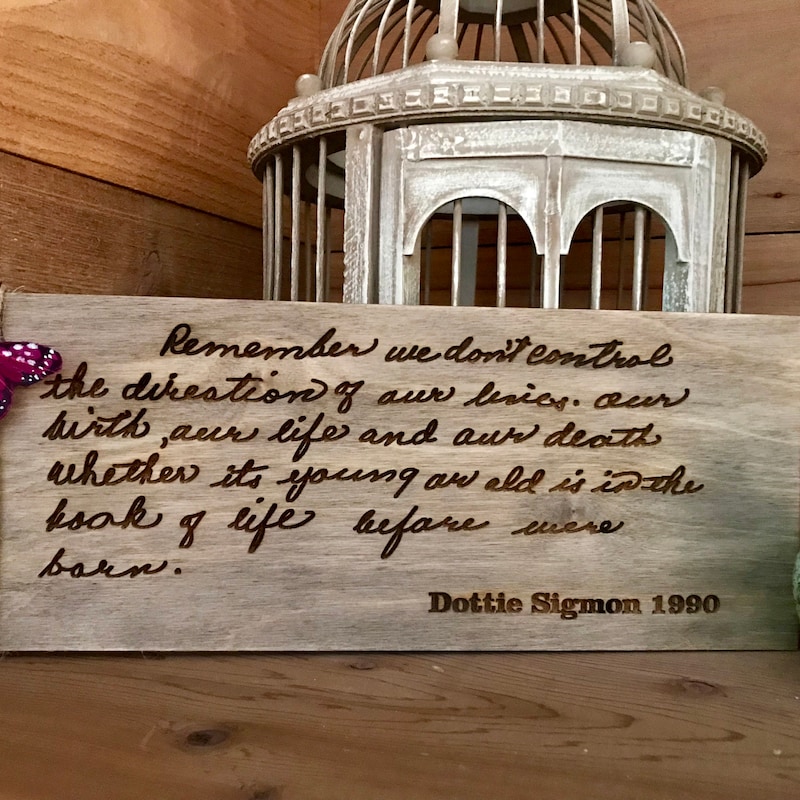 Remember we don't control
the direction of our lives. our
birth, our life and our death
whether its young or old is in the
book of life before were
born.
Dottie Sigmon 1990